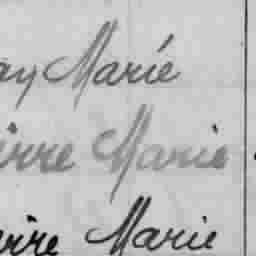 ay Marie
ierre Marie
ierre Marie